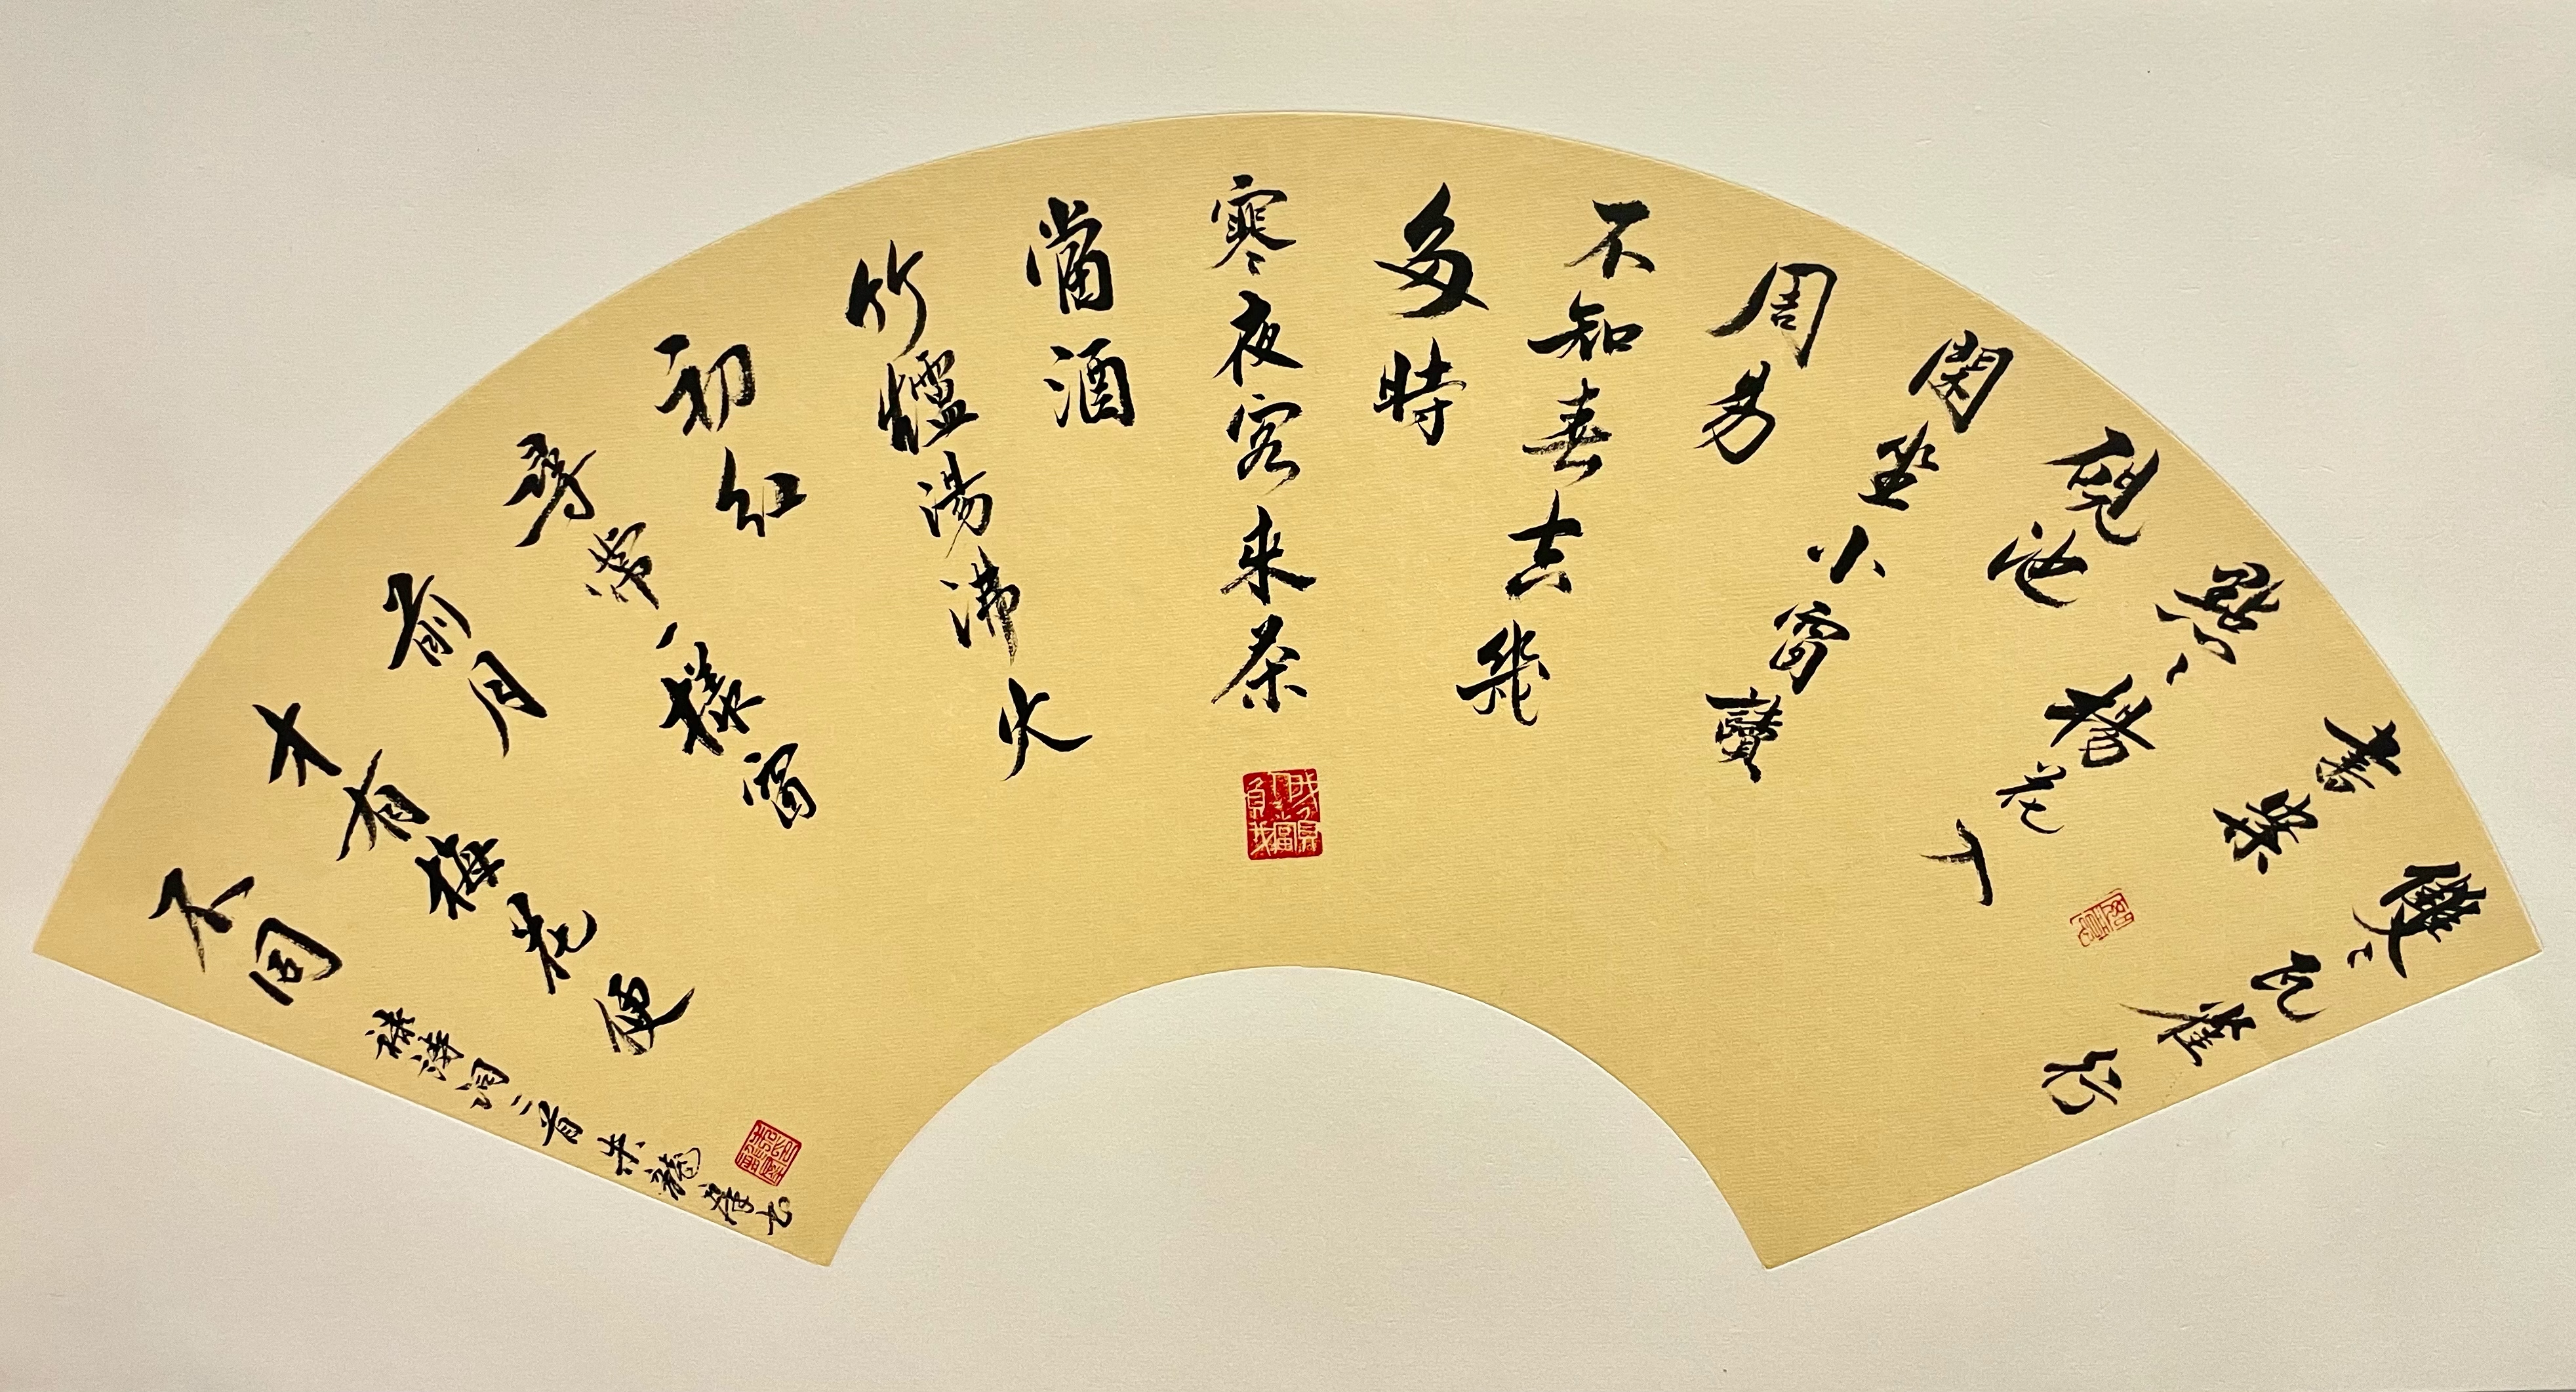 雙〻瓦雀行
書案
點〻楊花入
硯池
閑坐小窗讀
周易
不知春去幾
多時
寒夜客來茶
當酒
竹爐湯沸火
初紅
尋常一樣窗
前月
才有梅花便
不同
錄詩詞二首